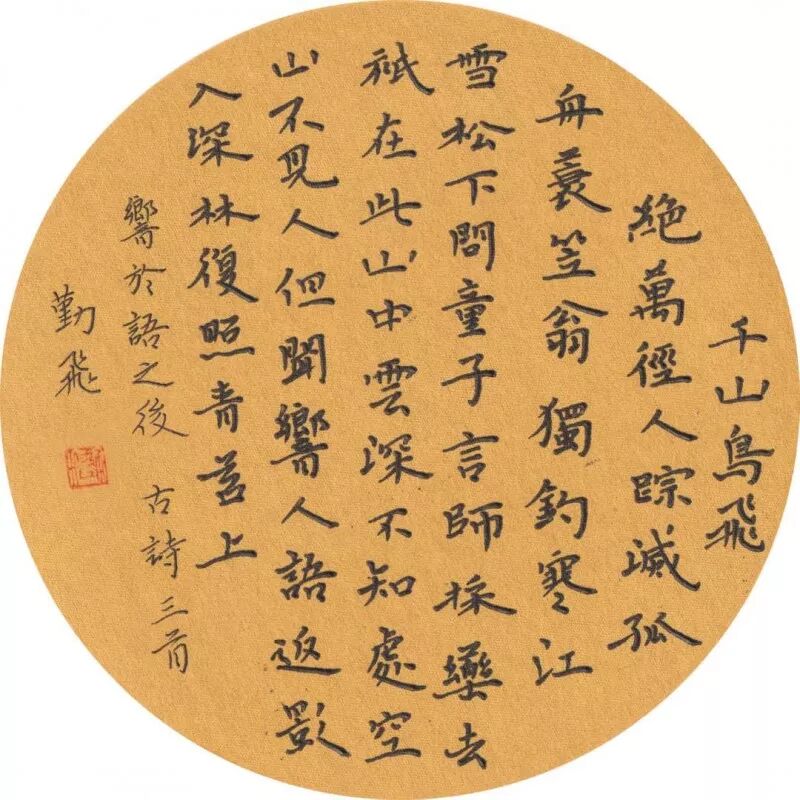 千山鳥飛
絶萬徑人踪滅孤
舟蓑笠翁獨釣寒江
雪松下問童子言師採藥去
祇在此山中雲深不知處空
山不見人但聞響人語返影
入深林復照青苔上
響於語之後 古詩三首
勤飛